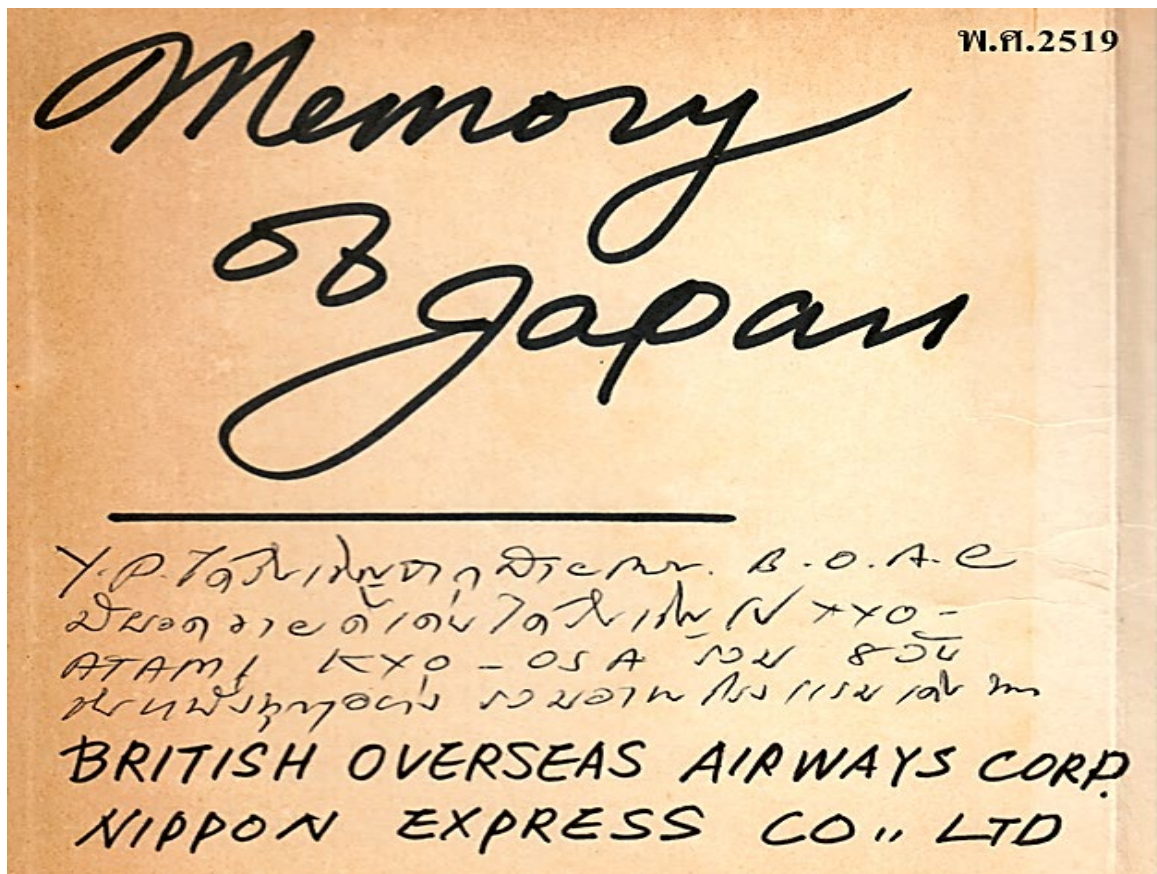 พ.ศ.2519
Memory
of
Japan
Y.P. ได้รับเชิญจากสายการ. B.O.A.C
มียอดขายดีเด่น ได้รับเชิญไป TYO-
ATAMI KYO - OSA รวม 8 วัน
ทุกอย่าง รวมอาหาร โรงแรม
BRITISH OVERSEAS AIRWAYS CORP.
NIPPON EXPRESS CO., LTD